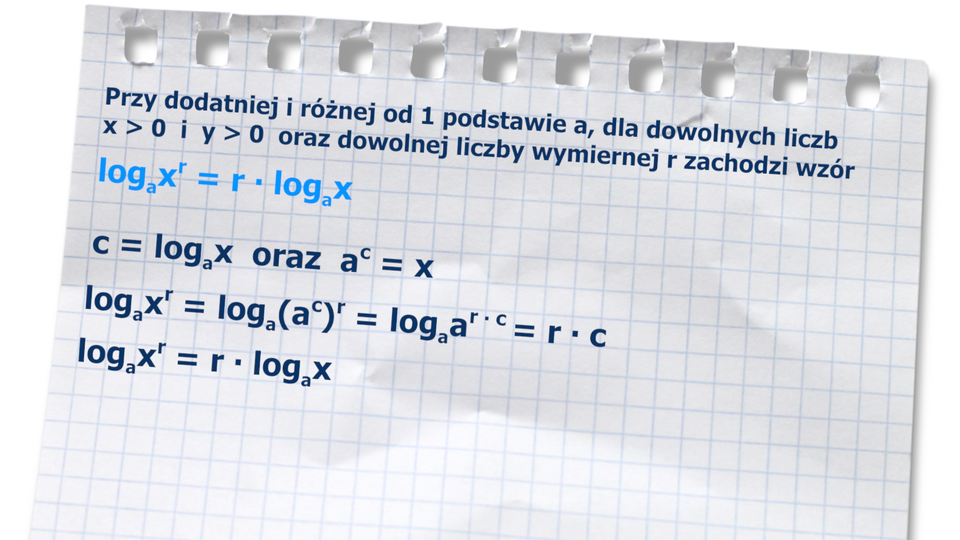 Przy dodatniej i różnej od 1 podstawie a, dla dowolnych liczb
x > 0 i y > 0 oraz dowolnej liczby wymiernej r zachodzi wzór
logₐxʳ = r · logₐx
c = logₐx oraz aᶜ = x
logₐxʳ = logₐ(aᶜ)ʳ = logₐaʳ ˙ ᶜ = r · c
logₐxʳ = r · logₐx